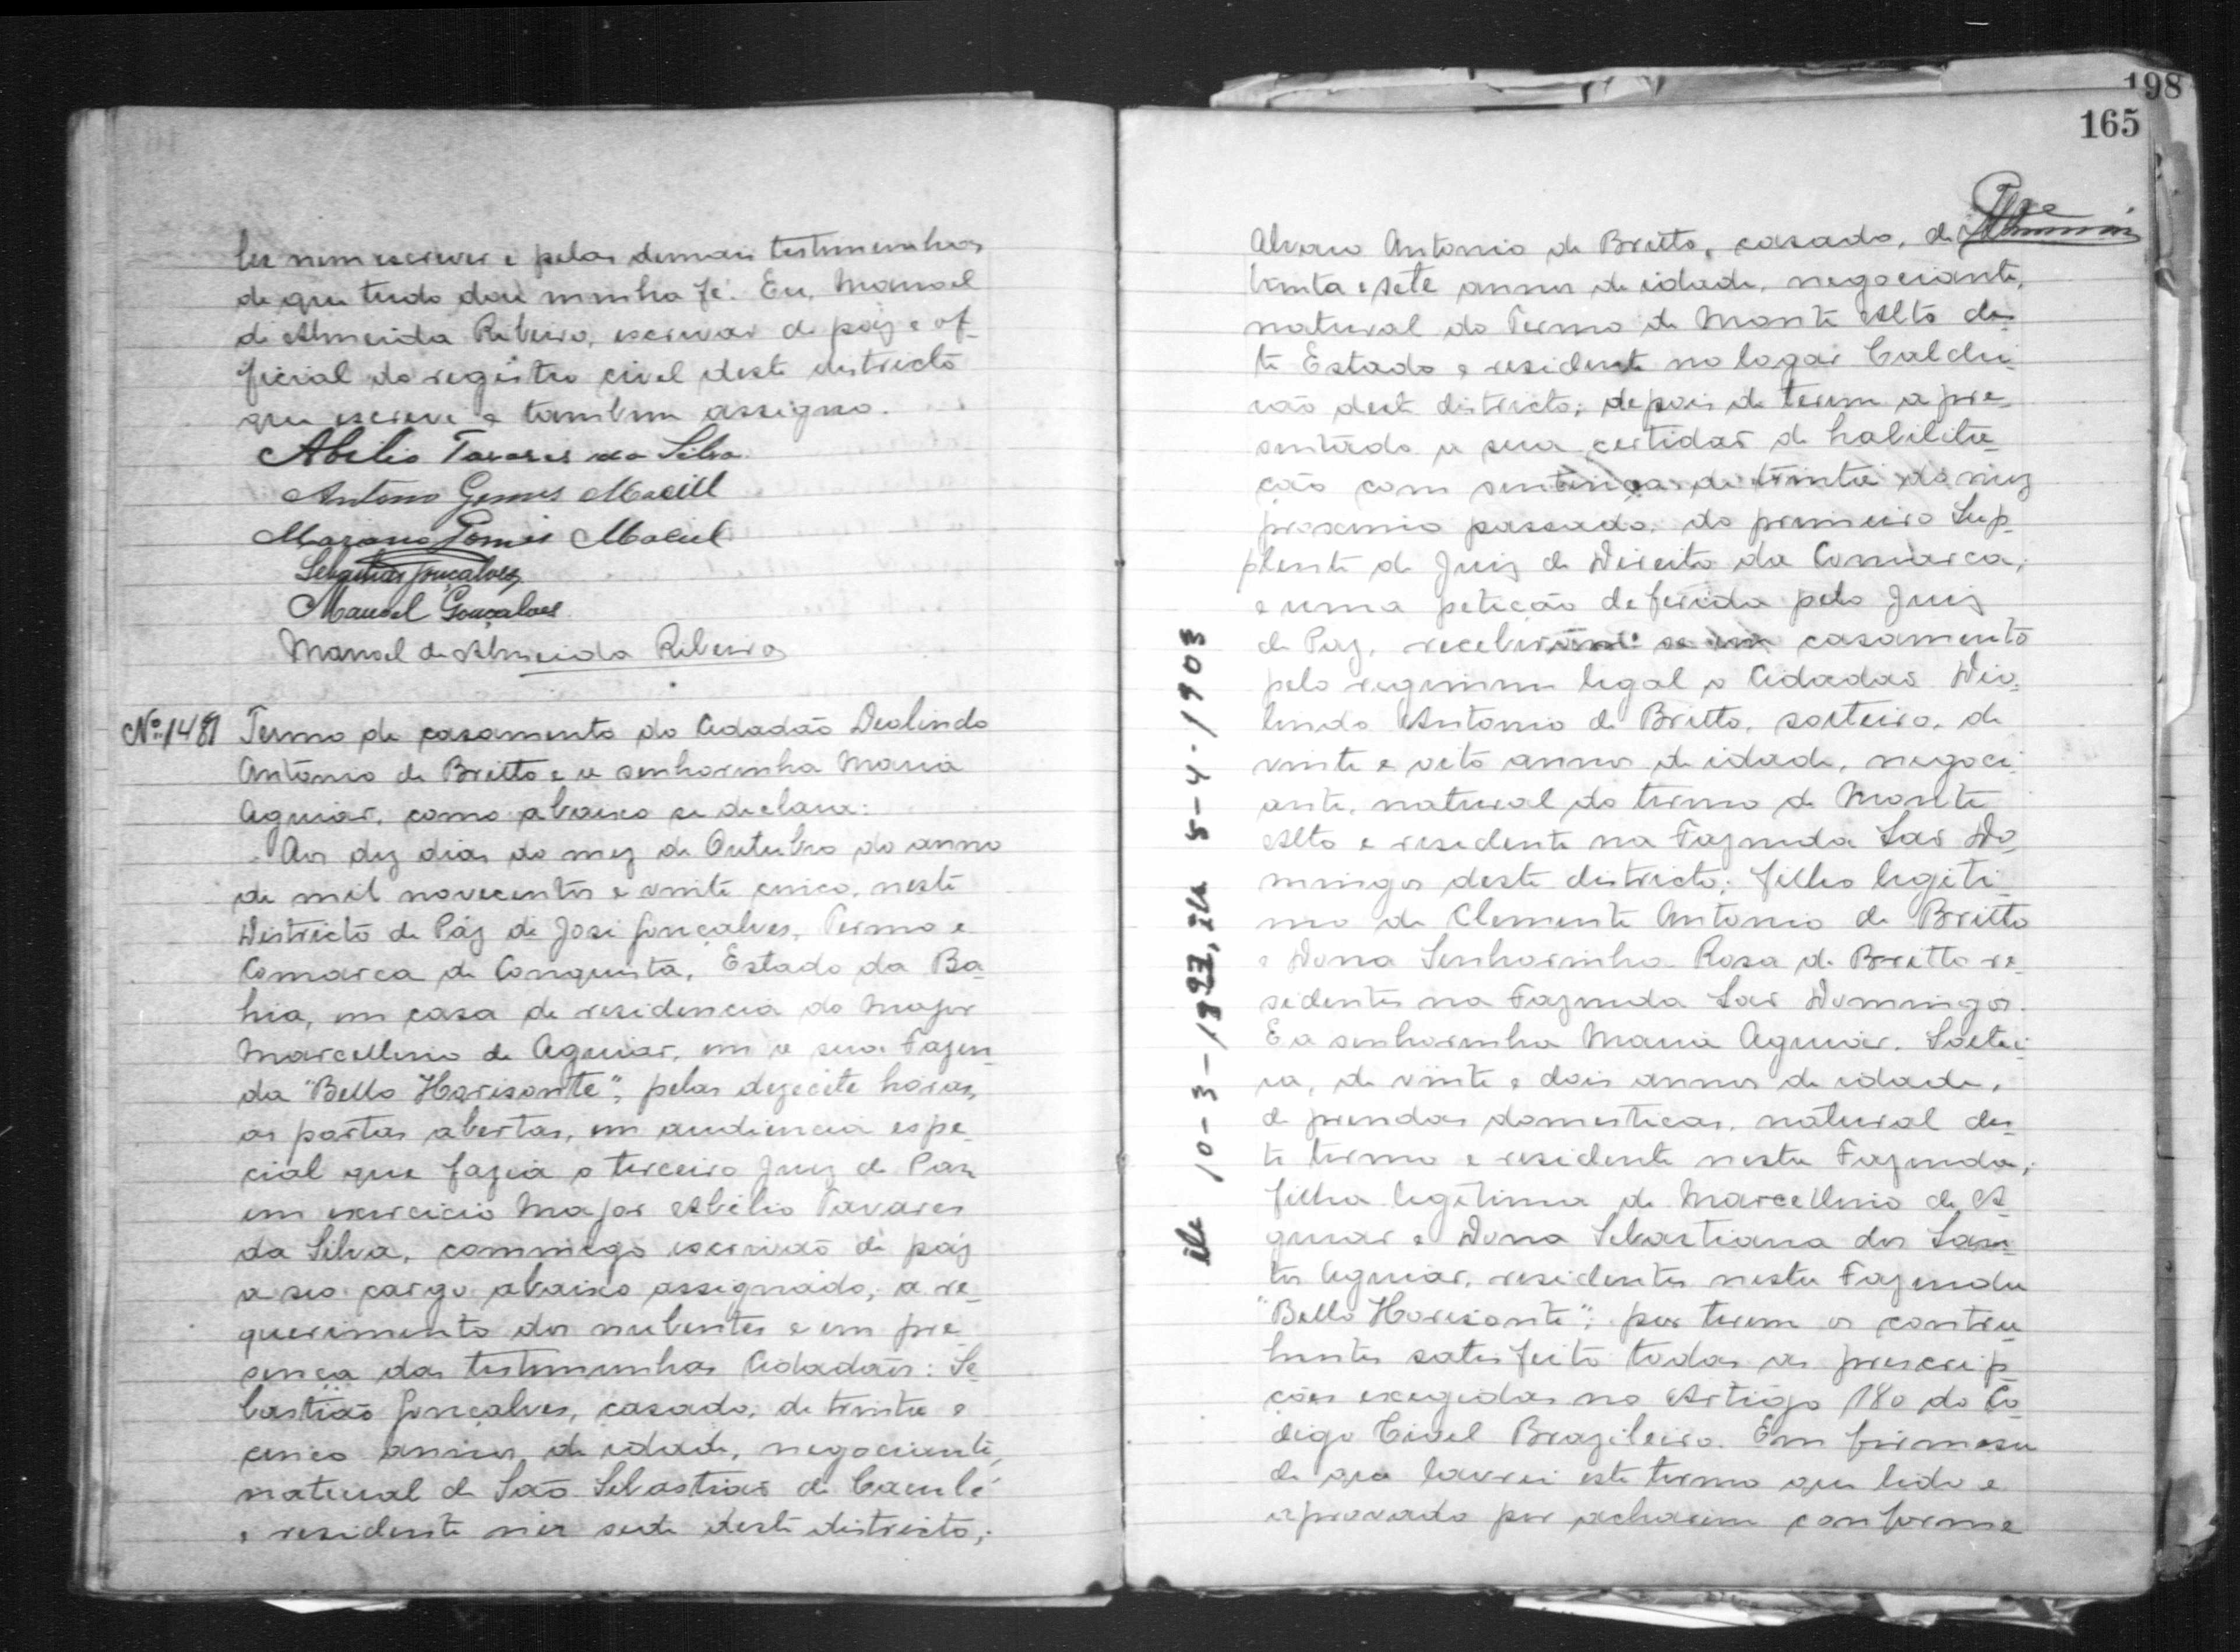 ler nem escrever e pelas demais testimunhas
de que tudo dou minha fé. Eu, Manoel
de Almeida Ribeiro, escrivão de páz e of-
ficial do registro civel deste districto
que escrevi e tambem assigno.
Abilio Tavares da Silva
Antonio Gomes Maciel
Mariano Gomes Maciel
Sebastião Gonçalves
Manoel Gonçalves
Manoel de Almeida Ribeiro
Nº 1481
Termo de casamento do Cidadão Deolindo
Antônio de Britto e a senhorinha Maria
Aguiar, como abaixo se declara:
Aos dez dias do mez de Outubro do anno
de mil novecentos e vinte cinco, neste
Districto de Páz de José Gonçalves, Termo e
Comarca de Conquista, Estado da Ba-
hia, em casa de residencia do Major
Marcellino de Aguiar, em a sua Fazen-
da "Bello Horisonte", pelas dezecete horas,
as portas abertas, em audiencia espe-
cial que fazia o terceiro Juiz de Paz
em exercicio Major Abilio Tavares
da Silva, commigo escrivão de páz
a seo cargo abaixo assignado, a re-
querimento dos nubentes e em pre-
sença das testimunhas Cidadãos: Se-
bastião Gonçalves, casado, de trinta e
cinco annos de idade, negociante,
natural de São Sebastião de Caculé
e residente na sede deste districto;
198
165
Alvaro Antonio de Britto, casado, de
trinta e sete annos de idade, negociante,
natural do Termo de Monte Alto des-
te Estado e residente no logar Caldei-
rão deste districto; depois de terem apre-
sentado a sua certidão de habilita-
ção com sentença de trinta do mez
proximo passado, do primeiro Sup-
plente de Juiz de Direito da Comarca,
e uma petição deferida pelo Juiz
de Paz, receberam-se em casamento
pelo regimem legal o Cidadão Deo-
lindo Antonio de Britto, solteiro, de
vinte e oito annos de idade, negoci-
ante, natural do termo de Monte
Alto e residente na Fazenda São Do-
mingos deste districto; filho legiti-
mo de Clemente Antonio de Britto
e Dona Senhorinha Rosa de Britto re-
sidentes na Fazenda São Domingos.
E a senhorinha Maria Aguiar, Soltei-
ra, de vinte e dois annos de idade,
de prendas domesticas, natural des-
te termo e residente nesta Fazenda;
filha legitima de Marcellino de A-
guiar e Dona Sebastiana dos San-
tos Aguiar, residentes nesta Fazenda
"Bello Horisonte"; por terem os contra-
hentes satisfeito todas as prescrip-
ções exegidas no Artigo 180 do Co-
digo Civel Brazileiro. Em firmesa
de que lavrei este termo que lido e
aprovado por acharem conforme
ele 10-3-1897, ela 5-4-1903